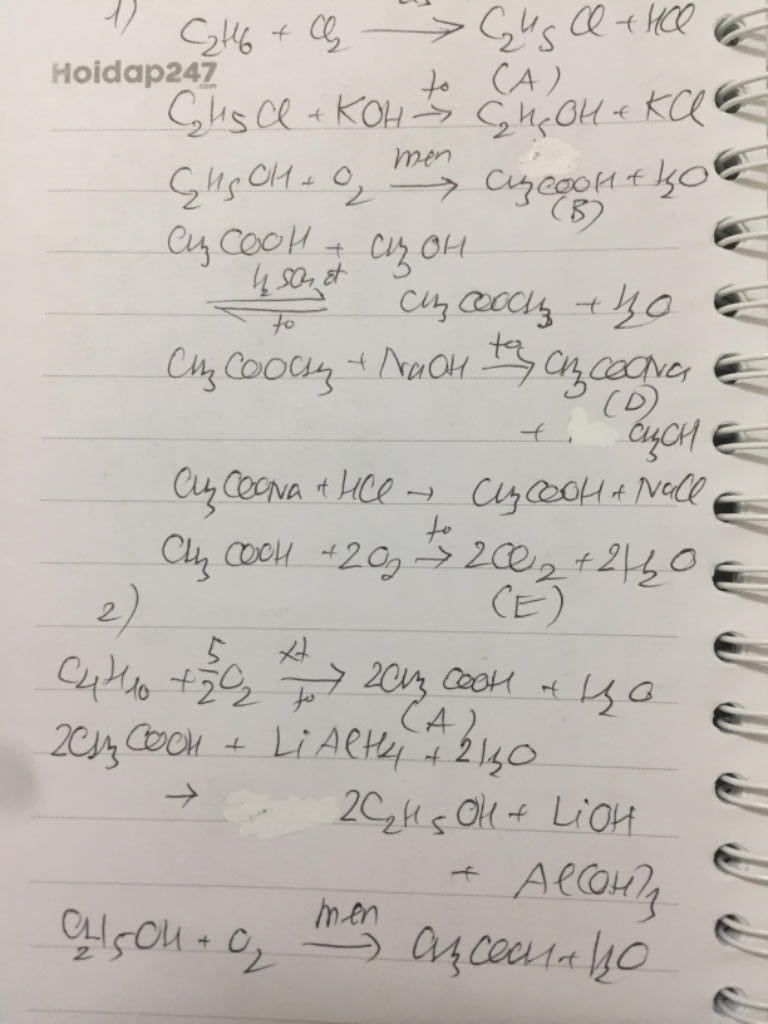 1) C2H6 + Cl2 → C2H5Cl + HCl
Hoidap247.com
to (A)
C2H5Cl + KOH → C2H5OH + KCl
C2H5OH + O2 men → CH3COOH + H2O
(B)
CH3COOH + CH3OH
H2SO4 đ
⇌ CH3COOCH3 + H2O
to
CH3COOCH3 + NaOH to → CH3COONa
(D)
+ CH3OH
CH3COONa + HCl → CH3COOH + NaCl
CH3COOH + 2O2 to → 2CO2 + 2H2O
2) (E)
C4H10 + 5/2 O2 xt → to 2CH3COOH + H2O
(A)
2CH3COOH + LiAlH4 + 2H2O
→ 2C2H5OH + LiOH
+ Al(OH)3
C2H5OH + O2 men → CH3COOH + H2O